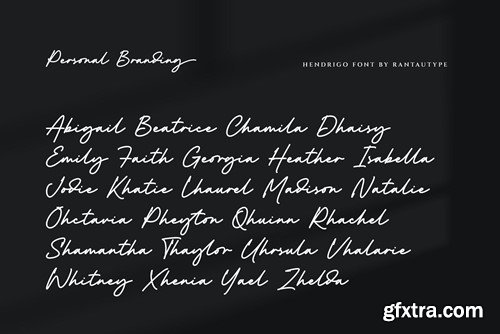 Personal Branding
HENDRIGO FONT BY RANTAUTYPE
Abigail Beatrice Chamila Dhaisy
Emily Faith Georgia Heather Isabella
Jodie Khatie Lhaurel Madison Natalie
Ohctavia Pheyton Qhuinn Rhachel
Shamantha Thaylor Uhrsula Vhalarie
Whitney Xhenia Yael Zhelda
gfxtra.com